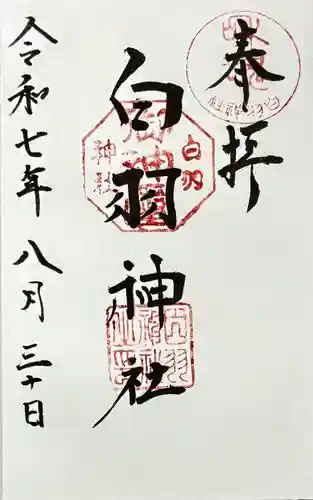 奉拝
白羽神社
令和七年八月三十日
白羽
神社